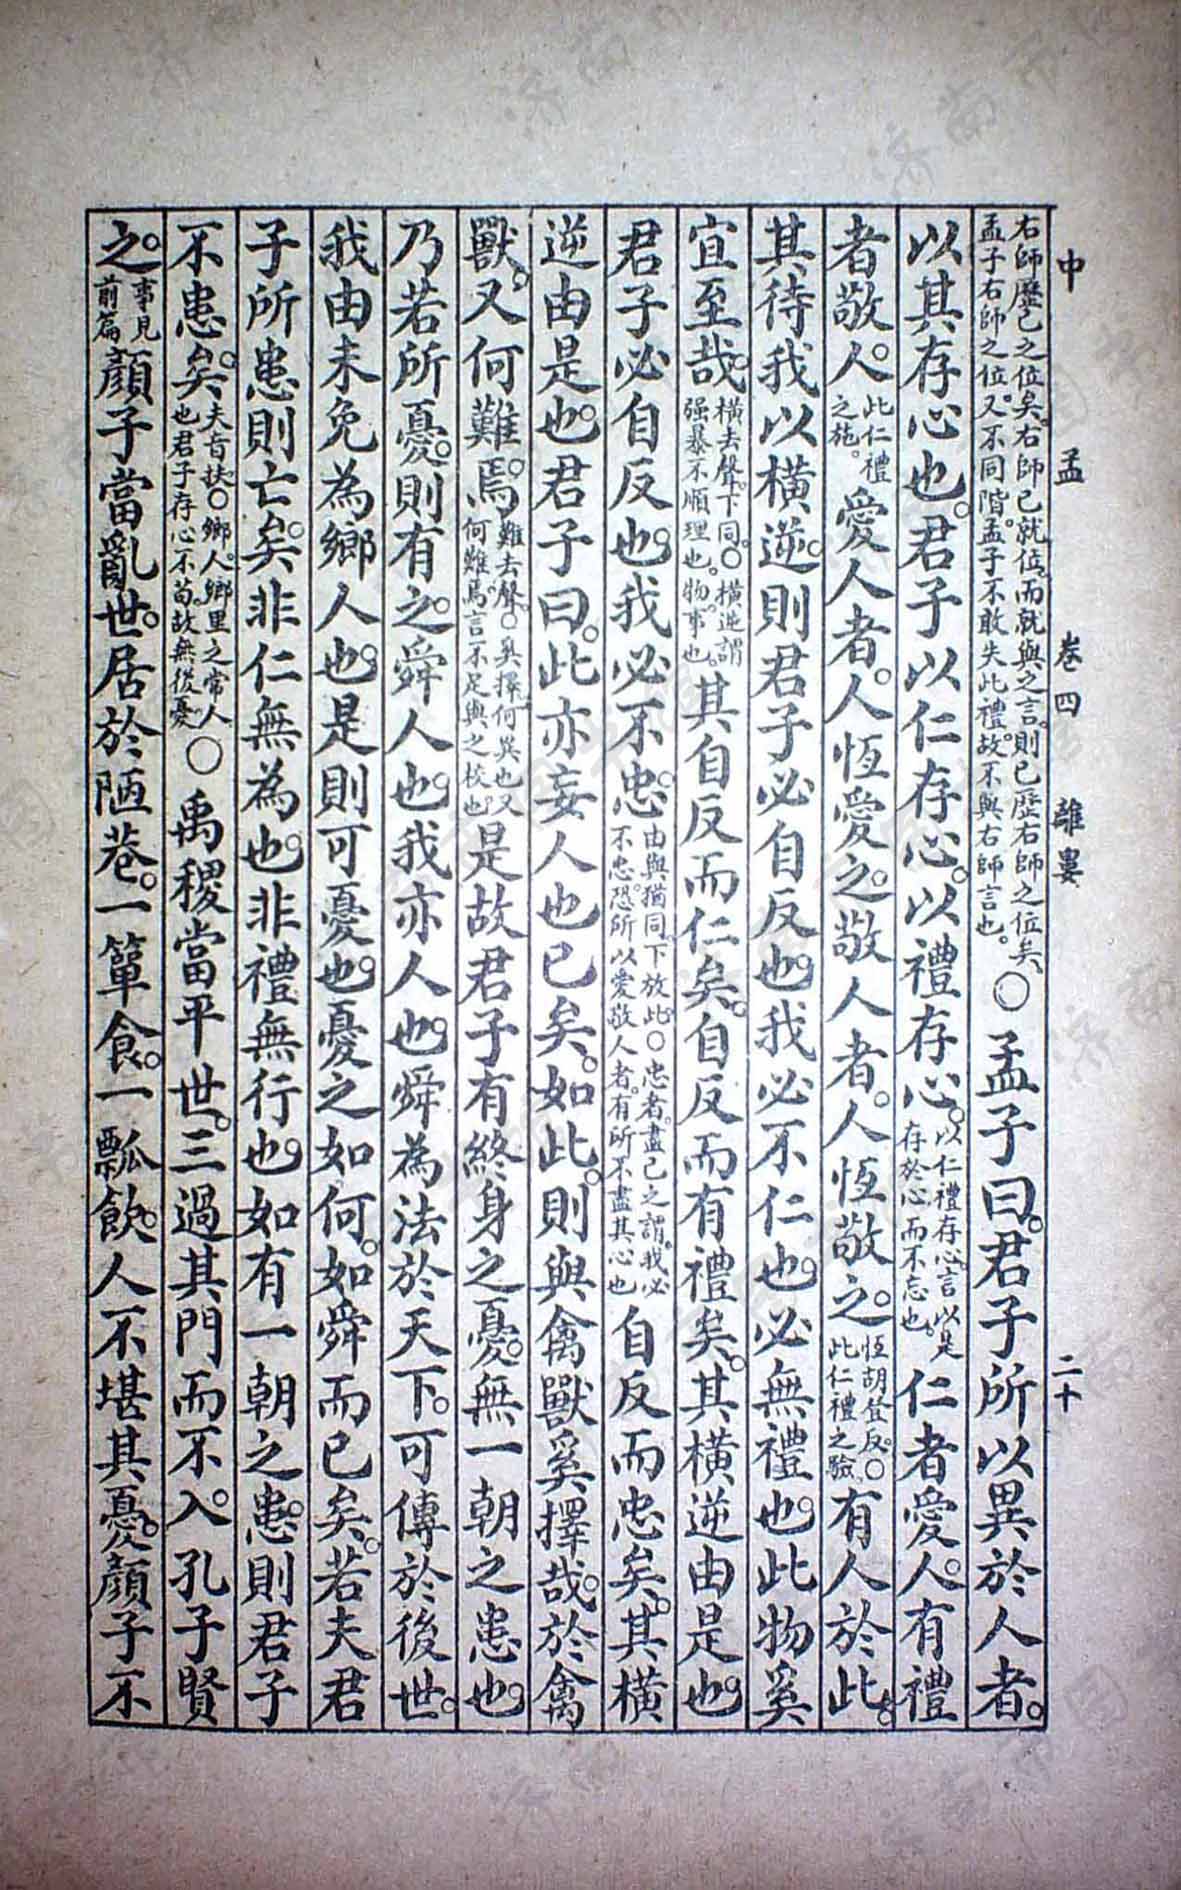 中孟　卷四　離婁　二十
右師歷己之位矣。右師已就位。而就與之言。則己歷右師之位矣。
孟子右師之位。又不同階。孟子不敢失此禮。故不與右師言也。
○孟子曰。君子所以異於人者。
以其存心也。君子以仁存心。以禮存心。
以仁禮存心。言以是
存於心而不忘也。
仁者愛人。有禮
者敬人。
此仁禮
之施。
愛人者。人恆愛之。敬人者。人恆敬之。
恆胡登反。○
此仁禮之驗
有人於此。
其待我以橫逆。則君子必自反也。我必不仁也。必無禮也。此物奚
宜至哉。
橫去聲。下同。○橫逆謂
强暴不順理也。物。事也。
其自反而仁矣。自反而有禮矣。其橫逆由是也。
君子必自反也。我必不忠。
由與猶同。下放此。○忠者。盡己之謂。我必
不忠。恐所以愛敬人者。有所不盡其心也
自反而忠矣。其橫
逆由是也。君子曰。此亦妄人也已矣。如此。則與禽獸奚擇哉。於禽
獸。又何難焉。
難去聲。○奚擇。何異也又
何難焉。言不足與之校也
是故君子有終身之憂。無一朝之患也。
乃若所憂。則有之。舜人也。我亦人也。舜為法於天下。可傳於後世。
我由未免為鄉人也。是則可憂也。憂之如何。如舜而已矣。若夫君
子所患則亡矣。非仁無為也。非禮無行也。如有一朝之患。則君子
不患矣。
夫音扶。○鄉人。鄉里之常人
也君子存心不苟。故無後憂。
○禹稷當平世。三過其門而不入。孔子賢
之。
事見
前篇
顏子當亂世。居於陋巷。一簞食。一瓢飲。人不堪其憂。顏子不